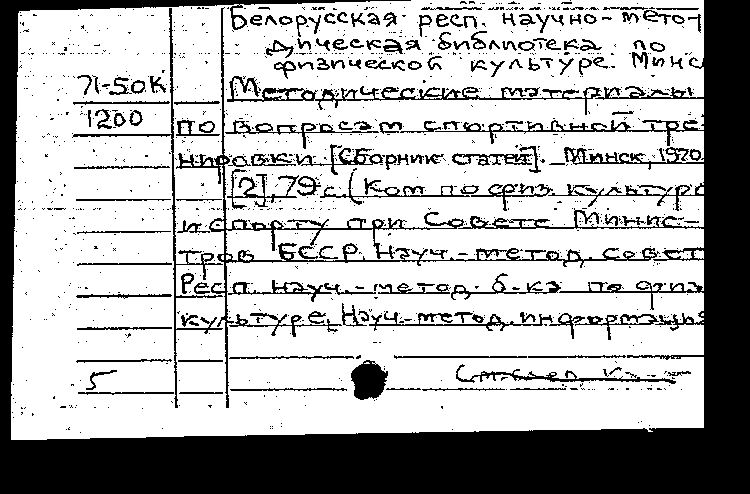 Белорусская респ. научно-мето-
дическая библиотека по
физической культуре. Минск
71-50К Методические материалы
1200 по вопросам спортивной тре-
нировки [Сборник статей]. Минск, 1970.
[2], 79 с. (Ком по физ. культуре
и спорту при Совете Минис-
тров БССР. Науч.-метод. совет
Респ. науч.-метод. б-ка по физ
культуре, Науч.-метод. информация
5 См. след. к